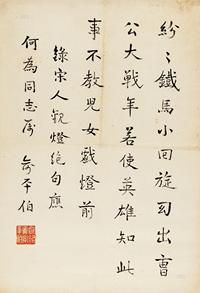 紛〻鐵馬小回旋幻出曹
公大戰年若使英雄知此
事不教兒女戲燈前
錄宋人觀燈絕句應
何為同志屬
俞平伯